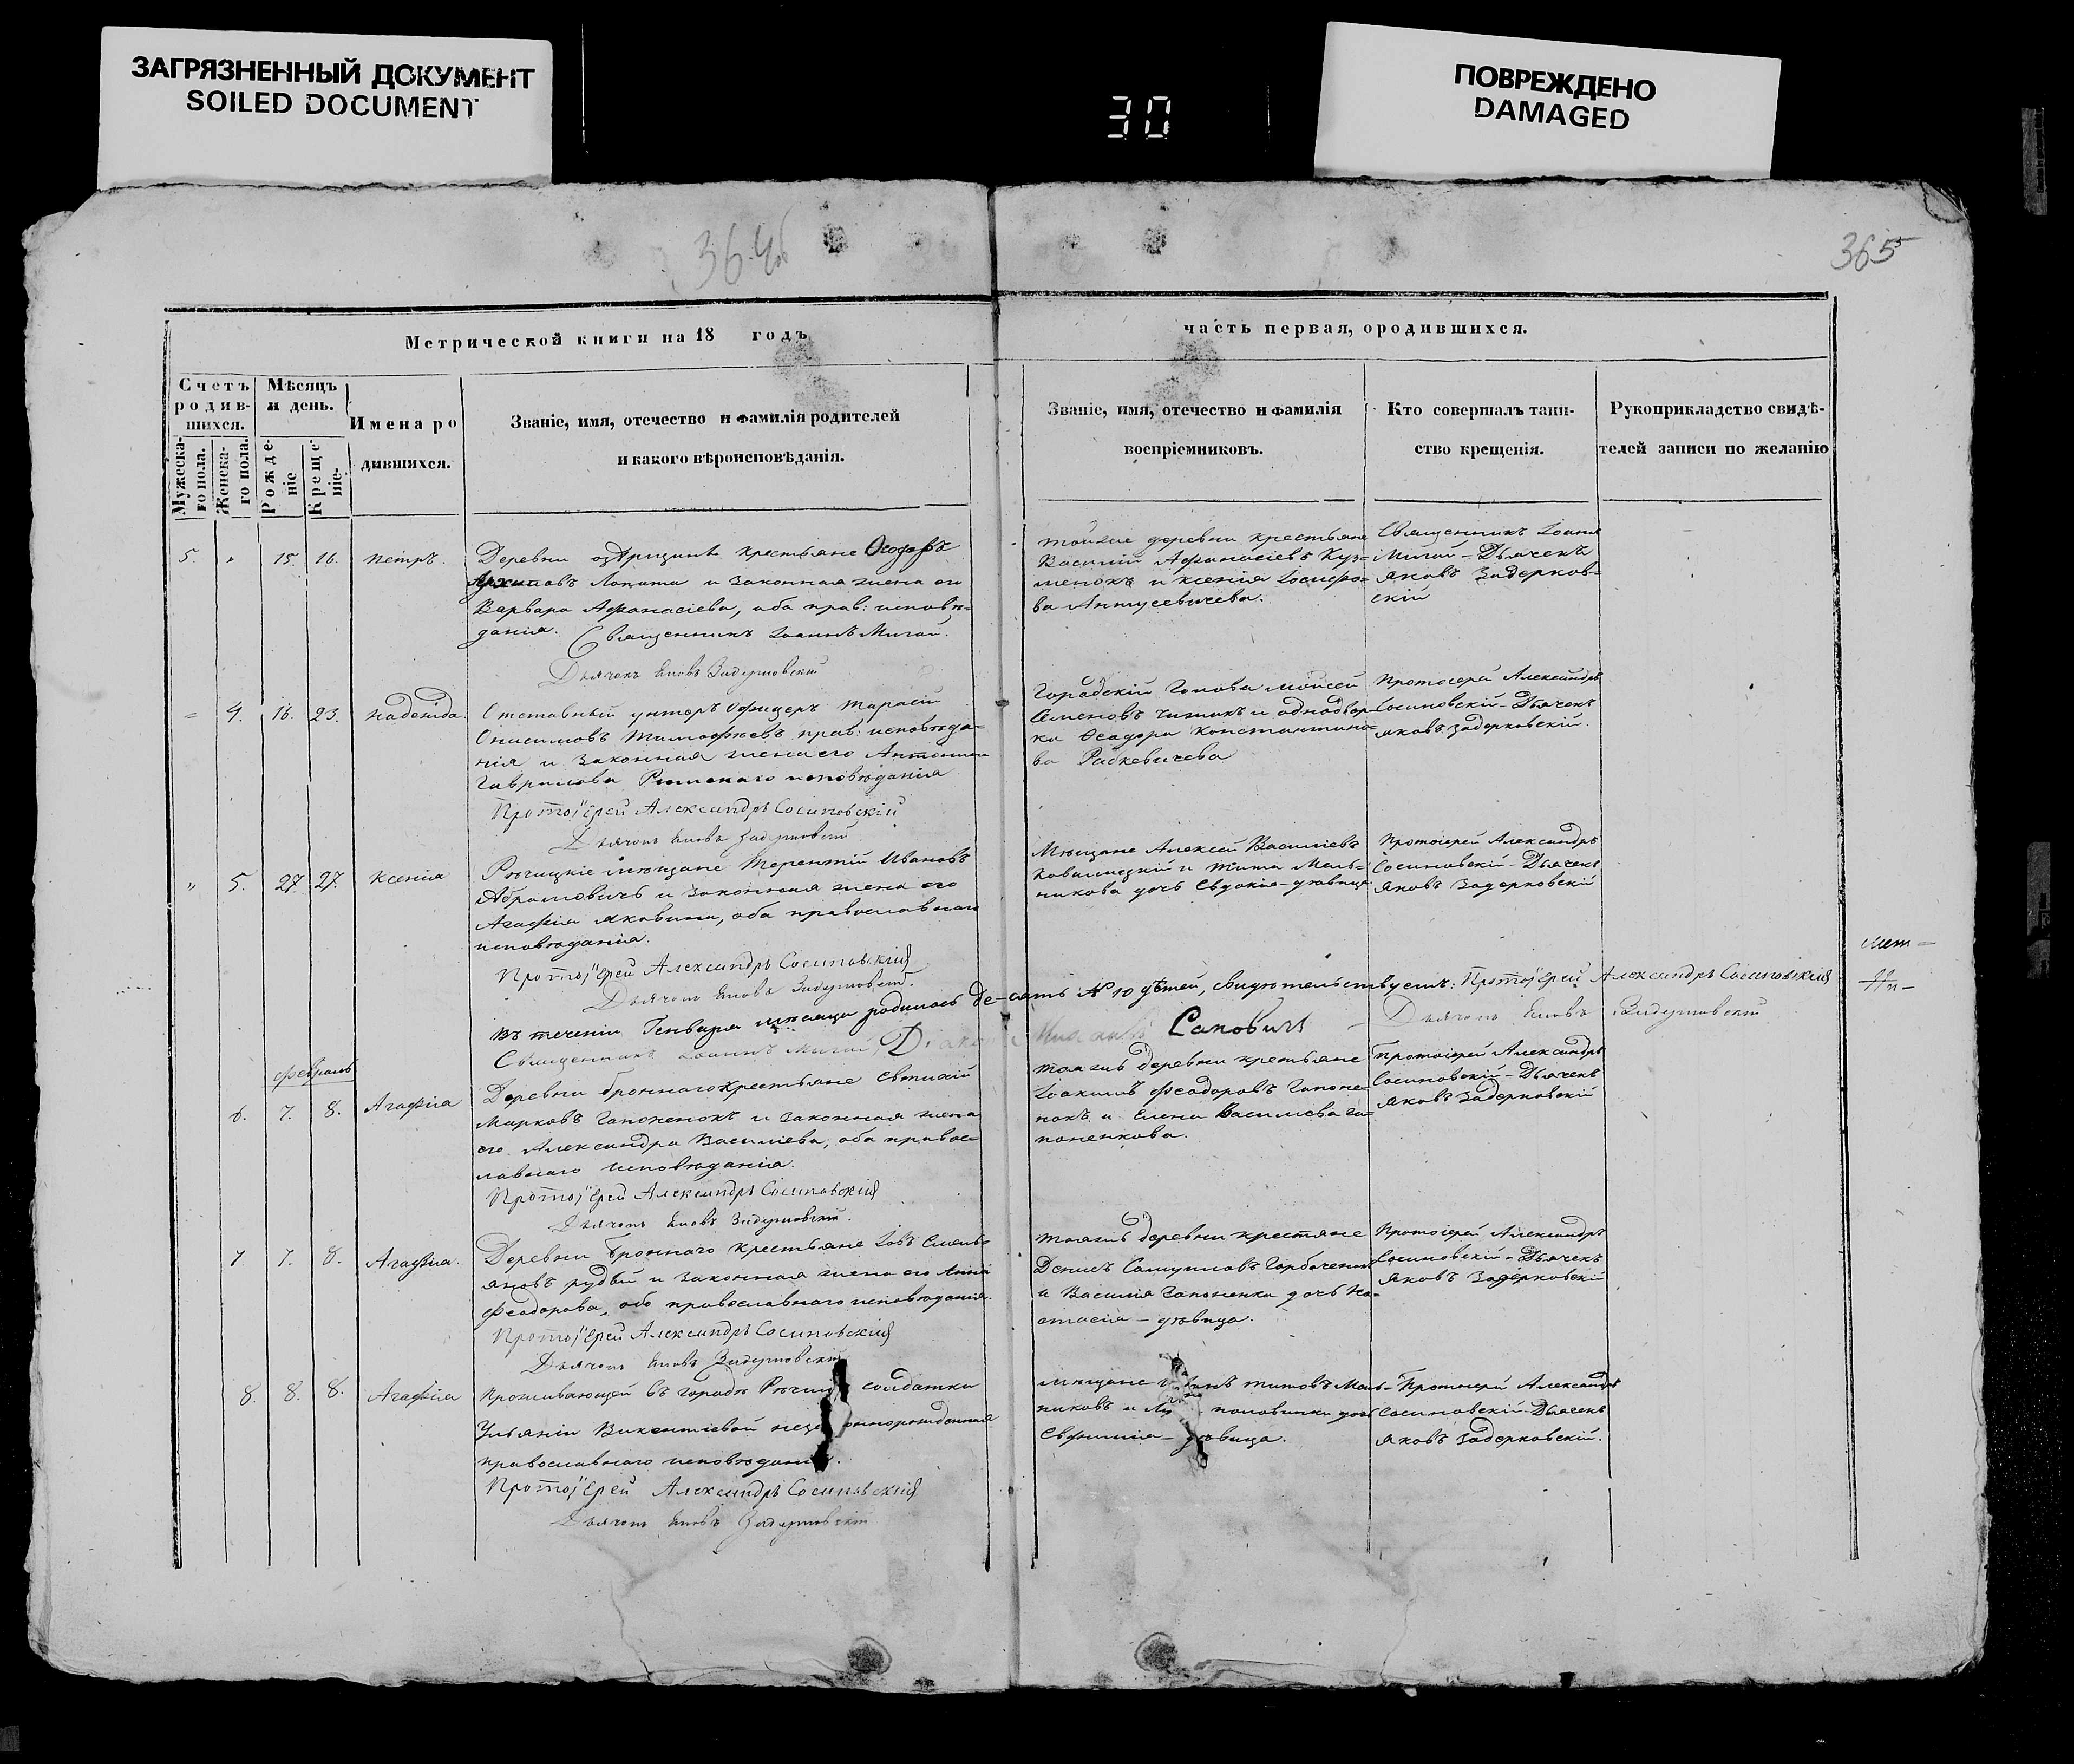 ЗАГРЯЗНЕННЫЙ ДОКУМЕНТ
SOILED DOCUMENT
30
ПОВРЕЖДЕНО
DAMAGED
364об
365
Метрической книги на 18 годъ
часть первая, ородившихся.
Счетъ родив-шихся.
Мужеска-го пола.
Женска-го пола.
Мѣсяцъ и день.
Рожде-ніе
Креще-ніе.
Имена ро
дившихся.
Званіе, имя, отечество и фамилія родителей
и какого вѣроисповѣданія.
Званіе, имя, отечество и фамилія
воспріемниковъ.
Кто совершалъ таин-
ство крещенія.
Рукоприкладство свидѣ-
телей записи по желанію
5. " 15. 16. Петръ.
Деревни озѣрщинѣ крестьяне
Лопата и законная жена его
Варвара Афанасіева, оба прав: исповѣ-
данія. Священникъ Іоаннъ Мигай.
Дьячокъ Яковъ Задерковскій
тойже деревни крестьяне
Василій Афанасіевъ Куз-
менокъ и Ксенія Іосифо-
ва Антусевичева.
Священникъ Іоаннъ
Мигай - Дьячекъ
Яковъ Задерков-
скій
4. 16. 23. Надежда.
Отставный унтеръ Офицеръ Тарасій
Онисимовъ Тимофѣевъ прав: исповѣда-
нія и законная жена его Антонина
Гаврилова Римскаго исповѣданія
Протоіерей Александръ Сосиновскій
Дьячокъ Яковъ Задерковскій
Городскій Голова Мойсей
Семеновъ Чижикъ и однодвор-
ка Ѳеодора Константино-
ва Радкевичева
Протоіерей Александръ
Сосиновскій - Дьячекъ
Яковъ Задерковскій.
" 5. 27. 27. Ксенія
Рѣчицкіе мѣщане Терентій Ивановъ
Абрамовичъ и законная жена его
Агафія Яковлева, оба православнаго
исповѣданія.
Протоіерей Александръ Сосиновскій
Дьячокъ Яковъ Задерковскій.
Мѣщане Алексей Василіевъ
и Тита Мель-
никова дочь Евдокія - дѣвица
Протоіерей Александръ
Сосиновскій - Дьячекъ
Яковъ Задерковскій
Въ теченіи Генваря мѣсяца родилось де-сять № 10 дѣтей, свидѣтельствуемъ: Протоіерей Александръ Сосиновскій
Священникъ Іоаннъ Мигай, Саковичъ Дьячокъ Яковъ Задерковскій
Февраль
6. 7. 8. Агафія
Деревни броннаго крестьяне Евтихій
Марковъ Гапоненокъ и законная жена
его Александра Василіева, оба правос-
лавнаго исповѣданія.
Протоіерей Александръ Сосиновскій
Дьячокъ Яковъ Задерковскій.
тояжъ деревни крестьяне
Іоакимъ Феодоровъ Гапоне-
нокъ и Елена Василіева га-
поненкова.
Протоіерей Александръ
Сосиновскій - Дьячекъ
Яковъ Задерковскій
7. 7. 8. Агафія.
Деревни броннаго крестьяне Іовъ Емель-
яновъ рудый и законная жена его Анна
Феодорова, оба православнаго исповѣданія.
Протоіерей Александръ Сосиновскій
Дьячокъ Яковъ Задерковскій
тояжъ деревни крестяне
Денисъ Самуиловъ Горбаченокъ
и Василія Гапоненка дочь На-
стасія - дѣвица.
Протоіерей Александръ
Сосиновскій - Дьячекъ
Яковъ Задерковскій
8. 8. 8. Агафія
Проживающей въ городѣ Рѣчицѣ солдатки
Ульяніи Викентіевой незаконнорожденная
православнаго исповѣданія.
Протоіерей Александръ Сосиновскій
Дьячокъ Яковъ Задерковскій
мѣщане Титовъ Мель-
никовъ и половинки дочь
Евфимія - дѣвица.
Протоіерей Александръ
Сосиновскій - Дьячекъ
Яковъ Задерковскій.